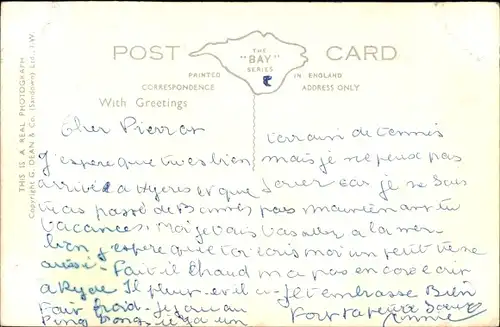 POST CARD
THE
"BAY"
SERIES
PRINTED IN ENGLAND
CORRESPONDENCE ADDRESS ONLY
With Greetings
THIS IS A REAL PHOTOGRAPH
Copyright G. DEAN & Co. (Sandown) Ltd., I.W.
Cher Pierrot
J'espere que tu es bien
arrivé a Hyeres et que
tu as passé de Bonnes
Vacances. Moi je vais
bien j'espere que toi
aussi. Fait il chaud
a Ryde Il pleut et il a
Fait froid. Je joue au
Ping Pong il y a un
terrain de tennis
mais je ne peux pas
Jouer car je ne sais
pas
Vas tu a la mer
Ecris moi un petit
m'a pas encore ecrit
Je t'embrasse Bien
Fort ta petite Soeur
Annie